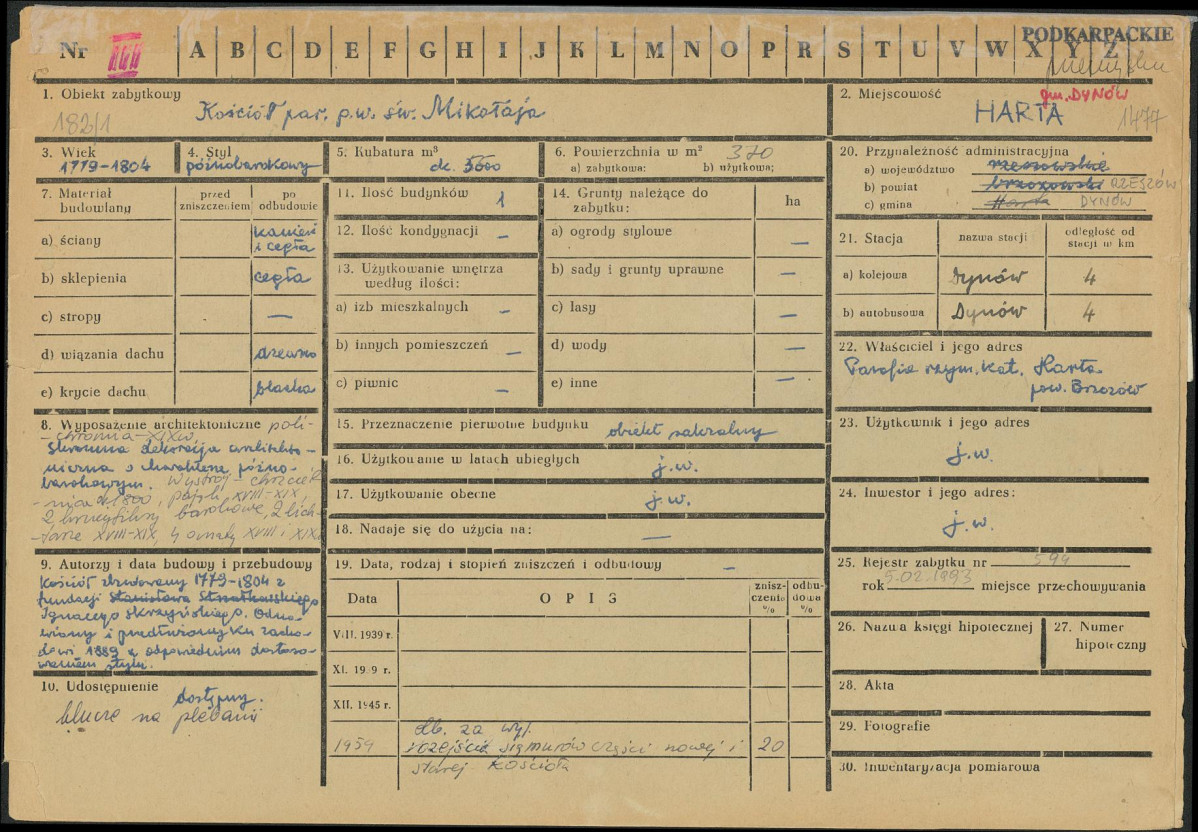 Nr III A B C D E F G H I J K L M N O P R S T U V W X Y Z PODKARPACKIE
1. Obiekt zabytkowy
182/1 Kościół par. p.w. św. Mikołaja
2. Miejscowość gm. DYNÓW
HARTA 1477
3. Wiek
1779-1804
4. Styl
późnobarokowy
5. Kubatura m³
ok. 5600
6. Powierzchnia w m² 370
a) zabytkowa: b) użytkowa:
7. Materiał budowlany
przed zniszczeniem
po odbudowie
a) ściany kamień
i cegła
b) sklepienia cegła
c) stropy —
d) wiązania dachu drzewno
e) krycie dachu blacha
8. Wyposażenie architektoniczne poli-
-chromia - XIX w.
skromna dekoracja architekto-
niczna o charakterze późno-
barokowym. Wystrój - chrzciel-
-nica ok. 1800, XVIII-XIX,
2 krucyfiksy barokowe, 2 lich-
-tarze XVIII-XIX, 4 ornaty XVIII i XIX
9. Autorzy i data budowy i przebudowy
Kościół zbudowany 1779-1804 z
fundacji Stanisława
Ignacego Skrzyńskiego. Odno-
wiony i przedłużony ku zacho-
dowi 1889 z odpowiednim dostoso-
waniem stylu.
10. Udostępnienie
dostępny.
klucze na plebanii
11. Ilość budynków 1
12. Ilość kondygnacji —
13. Użytkowanie wnętrza
według ilości:
a) izb mieszkalnych —
b) innych pomieszczeń —
c) piwnic —
14. Grunty należące do
zabytku:
ha
a) ogrody stylowe —
b) sady i grunty uprawne —
c) lasy —
d) wody —
e) inne —
15. Przeznaczenie pierwotne budynku obiekt sakralny
16. Użytkowanie w latach ubiegłych j.w.
17. Użytkowanie obecne j.w.
18. Nadaje się do użycia na: —
19. Data, rodzaj i stopień zniszczeń i odbudowy —
Data OPIS zniszczenia % odbudowa %
VIII. 1939 r.
XI. 19 9 r.
XII. 1945 r.
db. za wyj.
1959 rozejścia się murów części nowej i 20
starej kościoła
20. Przynależność administracyjna
a) województwo rzeszowskie
b) powiat brzozowski RZESZÓW
c) gmina Harta DYNÓW
21. Stacja nazwa stacji odległość od
stacji w km
a) kolejowa Dynów 4
b) autobusowa Dynów 4
22. Właściciel i jego adres
Parafia rzym. kat. Harta
pow. Brzozów
23. Użytkownik i jego adres
j.w.
24. Inwestor i jego adres:
j.w.
25. Rejestr zabytku nr 594
rok 5.02.1993 miejsce przechowywania
26. Nazwa księgi hipotecznej
27. Numer
hipoteczny
28. Akta
29. Fotografie
30. Inwentaryzacja pomiarowa